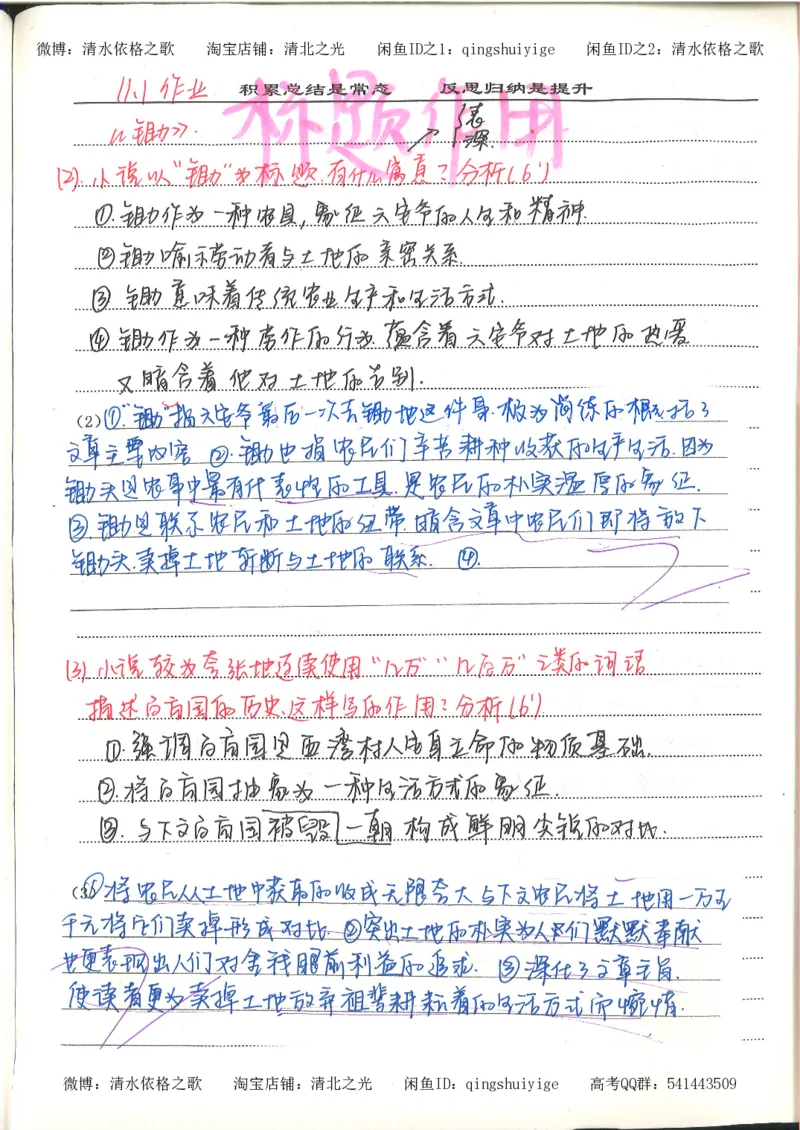 微博：清水依格之歌 淘宝店铺：清北之光 闲鱼ID之1：qingshuiyige 闲鱼ID之2：清水依格之歌
11.1 作业 积累总结是常态 反思归纳是提升
标题作用
表
深
《锄》.
(2). 小说以“锄”为标题有什么寓意？分析(6')
①.锄作为一种农具，象征六安爷的人生和精神.
②锄喻示劳动者与土地的亲密关系.
③ 锄意味着传统农业生产和生活方式.
④ 锄作为一种劳作的行为.蕴含着六安爷对土地的热爱
又暗含着他对土地的告别.
(2)①.“锄”指六安爷最后一次去锄地这件事.极为简练的概括了
文章主要内容 ②.锄也指农民们辛苦耕种收获的生产生活.因为
锄头是农事中最有代表性的工具.是农民的朴实温厚的象征.
③.锄是联系农民和土地的纽带.暗含文章中农民们即将放下
锄头.卖掉土地斩断与土地的联系. ④.
(3) 小说较为夸张地连续使用“几万”“几百万”之类的词语
描述百亩园的历史.这样写的作用？分析(6')
①.强调百亩园是西湾村人安身立命的物质基础.
②.将百亩园抽象为一种生活方式的象征.
③. 与下文百亩园被毁一朝构成鲜明尖锐的对比.
(3)①将农民从土地中获取的收成无限夸大与下文农民将土地用一万五
千元将它们卖掉形成对比.②突出土地的朴实为人们默默奉献
也更表现出人们对舍我眼前利益的追求. ③深化了文章主旨.
使读者更为卖掉土地放弃祖辈耕耘着的生活方式而惋惜.
微博：清水依格之歌 淘宝店铺：清北之光 闲鱼ID：qingshuiyige 高考QQ群：541443509